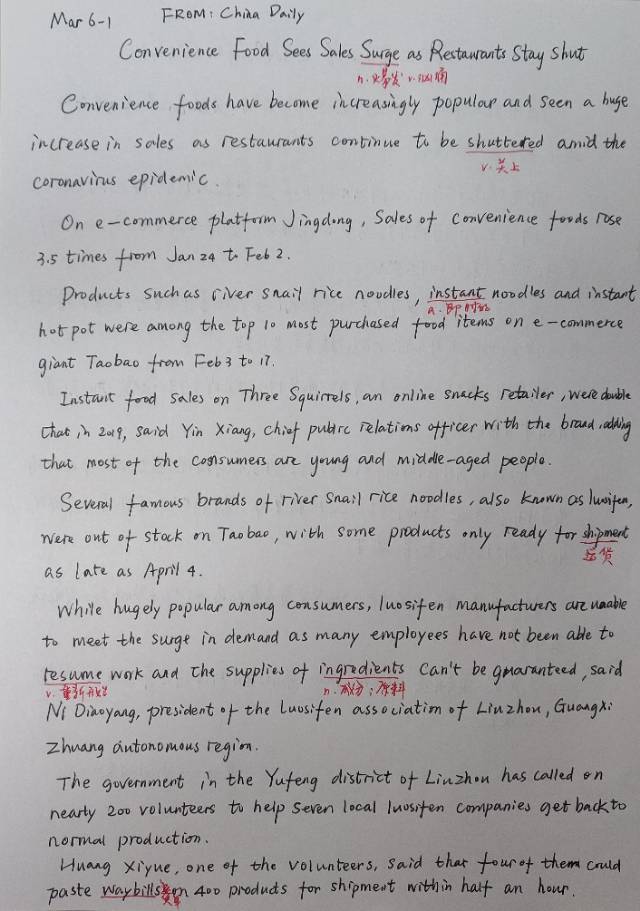 Mar 6-1 FROM: China Daily
Convenience Food Sees Sales Surge as Restaurants Stay Shut
n. 爆发 v.
Convenience foods have become increasingly popular and seen a huge
increase in sales as restaurants continue to be shuttered amid the
v. 关上
coronavirus epidemic.
On e-commerce platform Jingdong, Sales of convenience foods rose
3.5 times from Jan 24 to Feb 2.
Products such as river snail rice noodles, instant noodles and instant
a. 即时的
hot pot were among the top 10 most purchased food items on e-commerce
giant Taobao from Feb 3 to 17.
Instant food sales on Three Squirrels, an online snacks retailer, were double
that in 2019, said Yin Xiang, chief public relations officer with the brand, adding
that most of the consumers are young and middle-aged people.
Several famous brands of river snail rice noodles, also known as luosifen,
were out of stock on Taobao, with some products only ready for shipment
运货
as late as April 4.
While hugely popular among consumers, luosifen manufacturers are unable
to meet the surge in demand as many employees have not been able to
resume work and the supplies of ingredients can't be guaranteed, said
v. 重新开始 n. 成分; 原料
Ni Diaoyang, president of the Luosifen association of Liuzhou, Guangxi
Zhuang autonomous region.
The government in the Yufeng district of Liuzhou has called on
nearly 200 volunteers to help seven local luosifen companies get back to
normal production.
Huang Xiyue, one of the volunteers, said that four of them could
paste waybills on 400 products for shipment within half an hour.